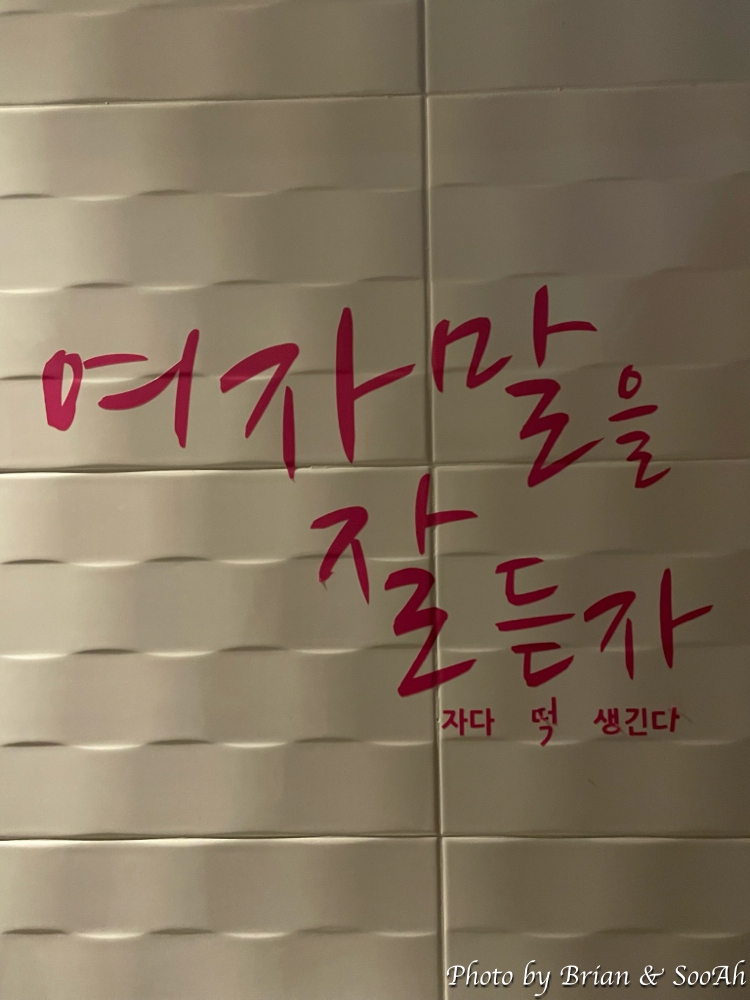 여자 말을
잘 듣자
자다 떡 생긴다
Photo by Brian & SooAh